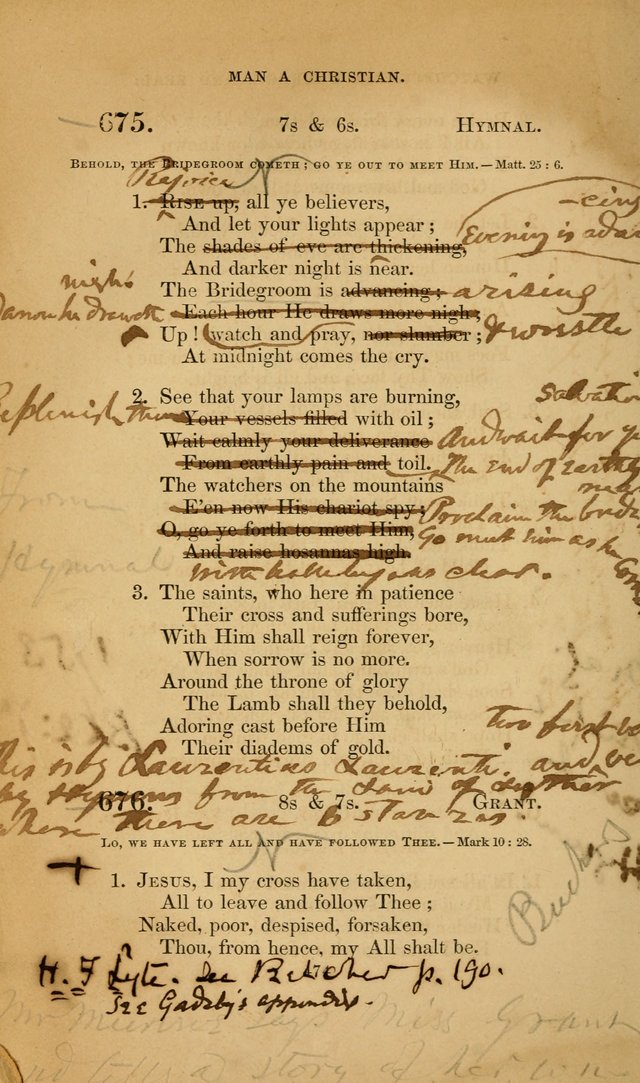 MAN A CHRISTIAN.
675. 7s & 6s. HYMNAL.
BEHOLD, THE BRIDEGROOM COMETH; GO YE OUT TO MEET HIM.—Matt. 25 : 6.
Rejoice
1. RISE up, all ye believers,
And let your lights appear;
The shades of eve are thickening, Evening is
And darker night is near.
night
The Bridegroom is advancing; arising
Each hour He draws more nigh;
Up! watch and pray, nor slumber; & wrestle
At midnight comes the cry.
2. See that your lamps are burning, salvation
Replenish them Your vessels filled with oil;
Wait calmly your deliverance And wait for
From earthly pain and toil. The End of Earthly
The watchers on the mountains
E'en now His chariot spy; Proclaim the
O, go ye forth to meet Him, Go meet him as he
And raise hosannas high.
With hallelujahs clear.
From
Hymnal
3. The saints, who here in patience
Their cross and sufferings bore,
With Him shall reign forever,
When sorrow is no more.
Around the throne of glory
The Lamb shall they behold,
Adoring cast before Him two first
Their diadems of gold.
This is by Laurentius Laurenti. and
by Hymns from the Land of Luther
676. 8s & 7s. GRANT.
where there are 6 stanzas.
LO, WE HAVE LEFT ALL AND HAVE FOLLOWED THEE.—Mark 10 : 28.
1. JESUS, I my cross have taken,
All to leave and follow Thee;
Naked, poor, despised, forsaken,
Thou, from hence, my All shalt be.
H. F Lyte. See Butcher p. 190.
See Gadsby's appendix.
Miss Grant
a story of her